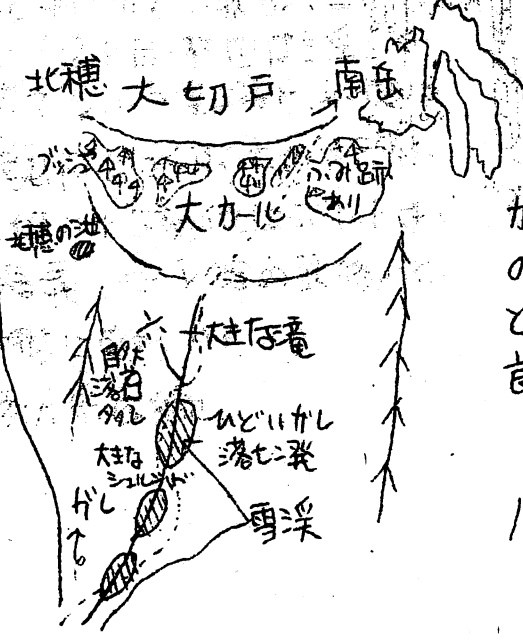 北穂
大切戸
南岳
ブッシュ
ふみ跡
あり
大カール
北穂の池
大きな滝
自然
落石
タタシ
ひどいガレ
落セン発
大きな
シュルンド
ガレ
雪渓
か
の
と